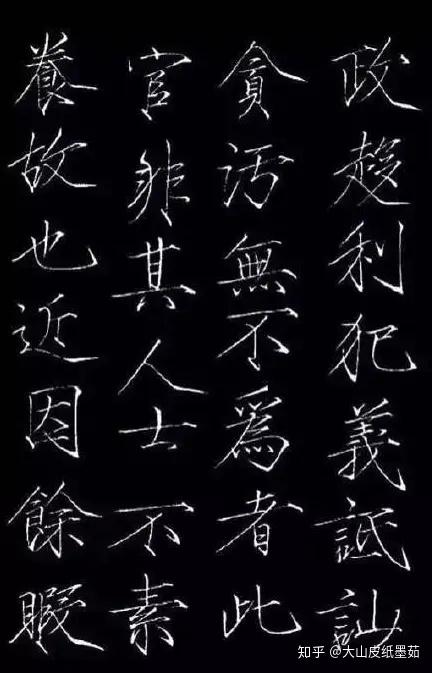 政趍利犯義詆訕
貪污無不爲者此
官非其人士不素
養故也近因餘暇
知乎 @大山皮纸墨茹